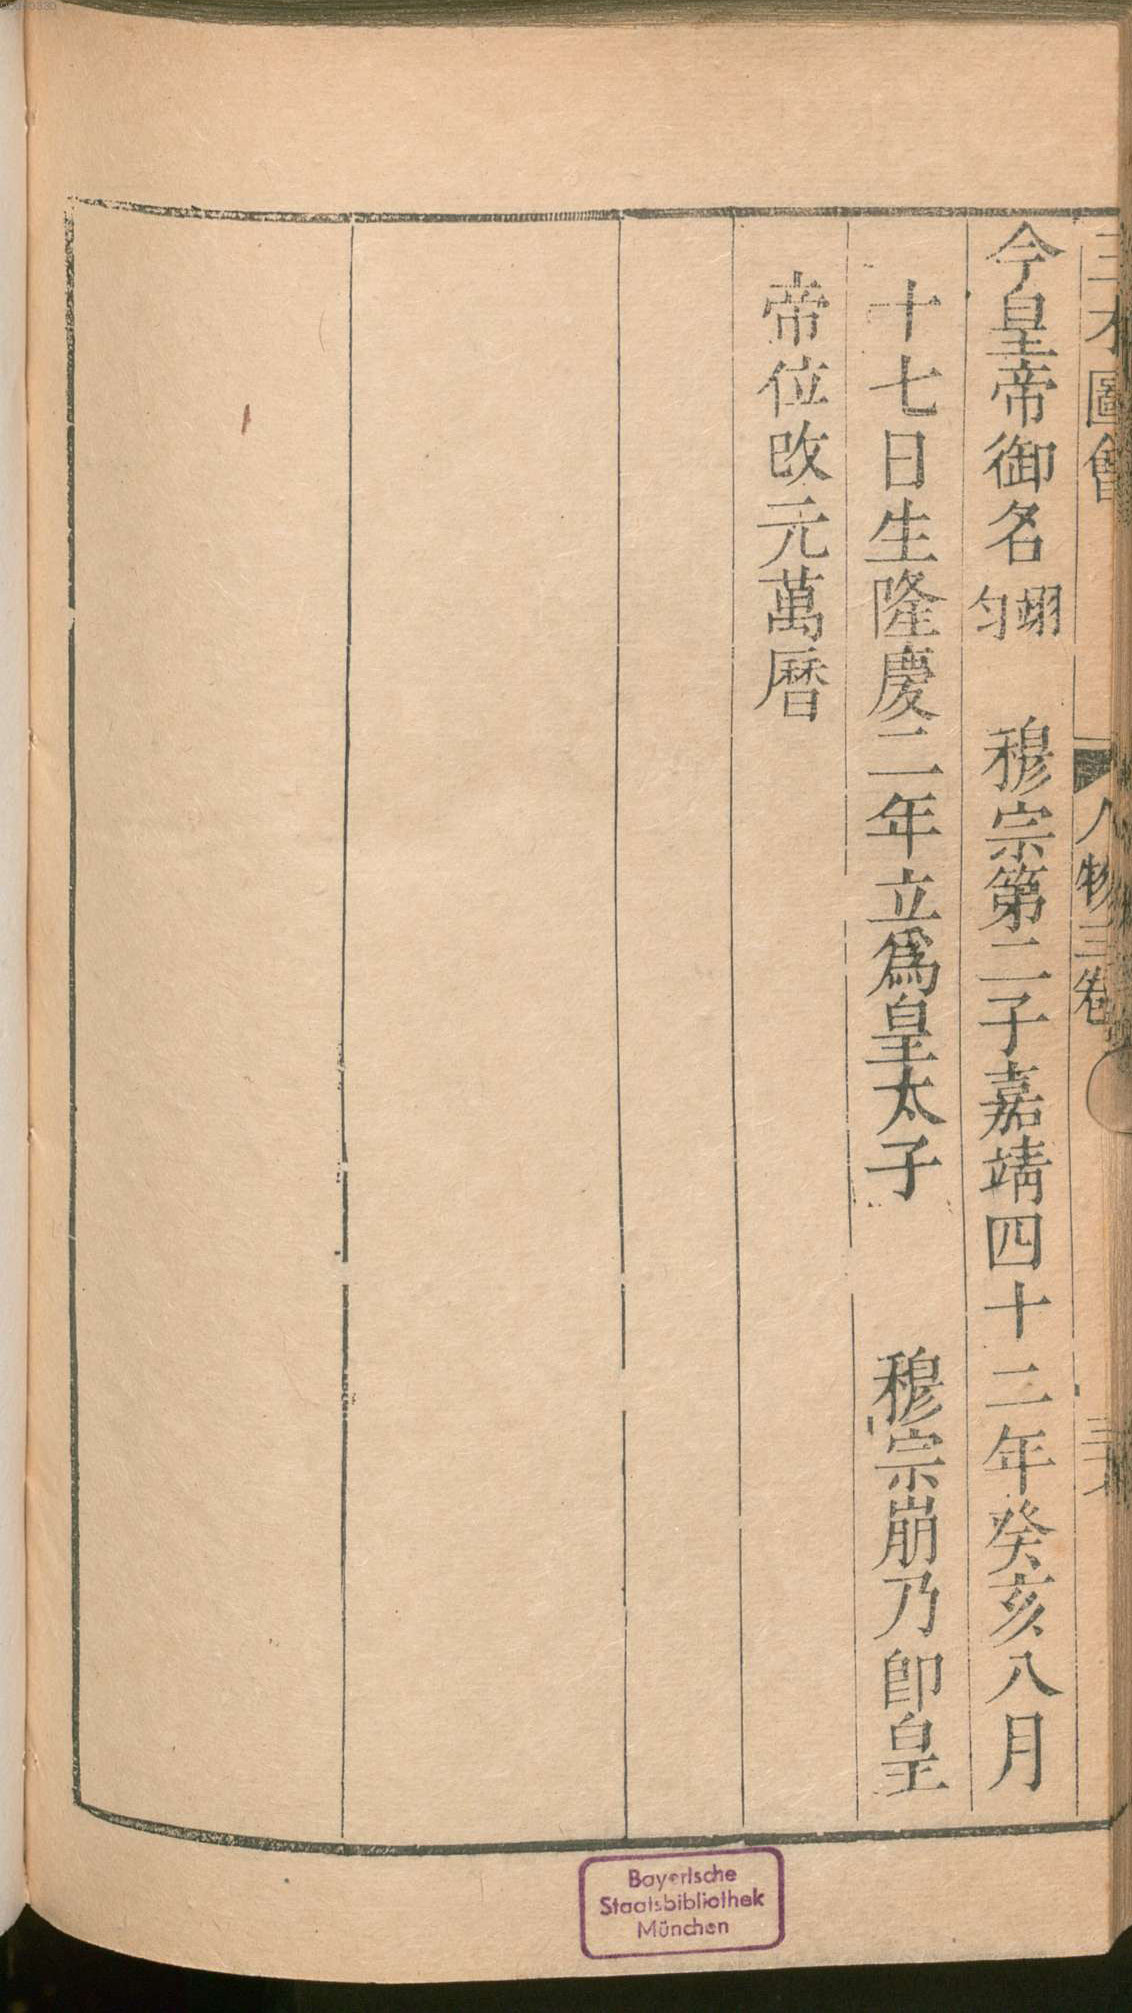 三才圖會 人物三卷
今皇帝御名翊匀 穆宗第二子嘉靖四十二年癸亥八月
十七日生隆慶二年立爲皇太子 穆宗崩乃卽皇
帝位改元萬曆
Bayerische
Staatsbibliothek
München